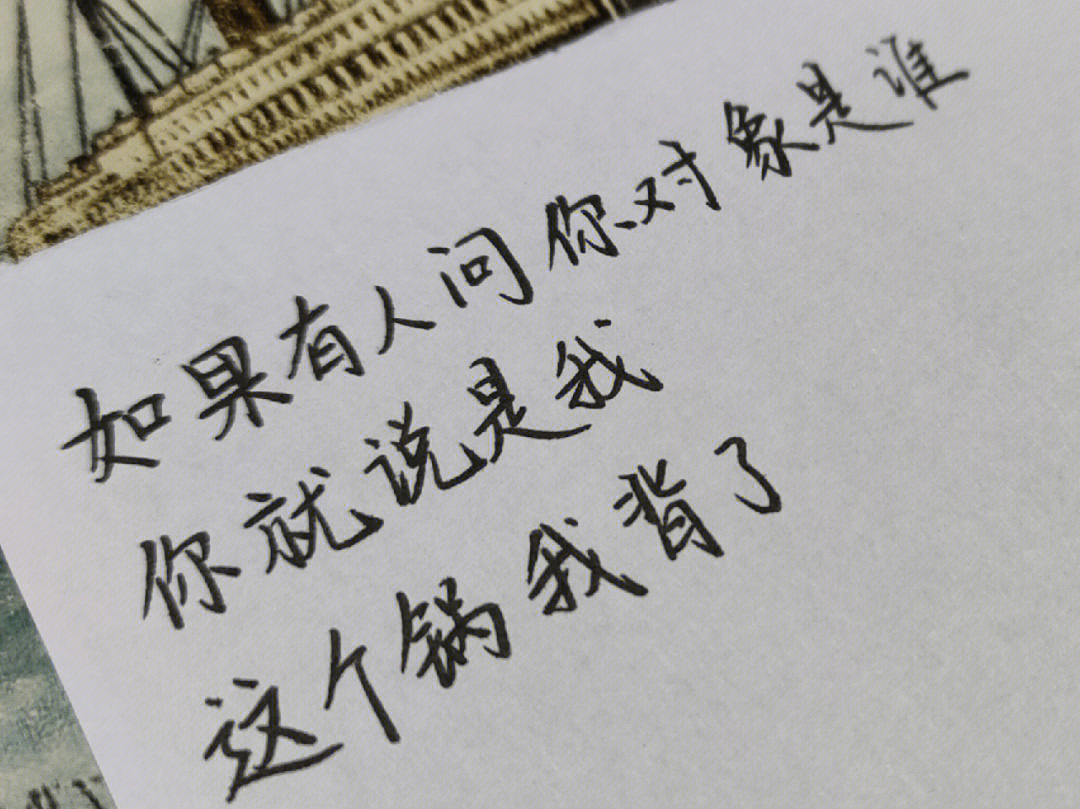 如果有人问你对象是谁
你就说是我
这个锅我背了